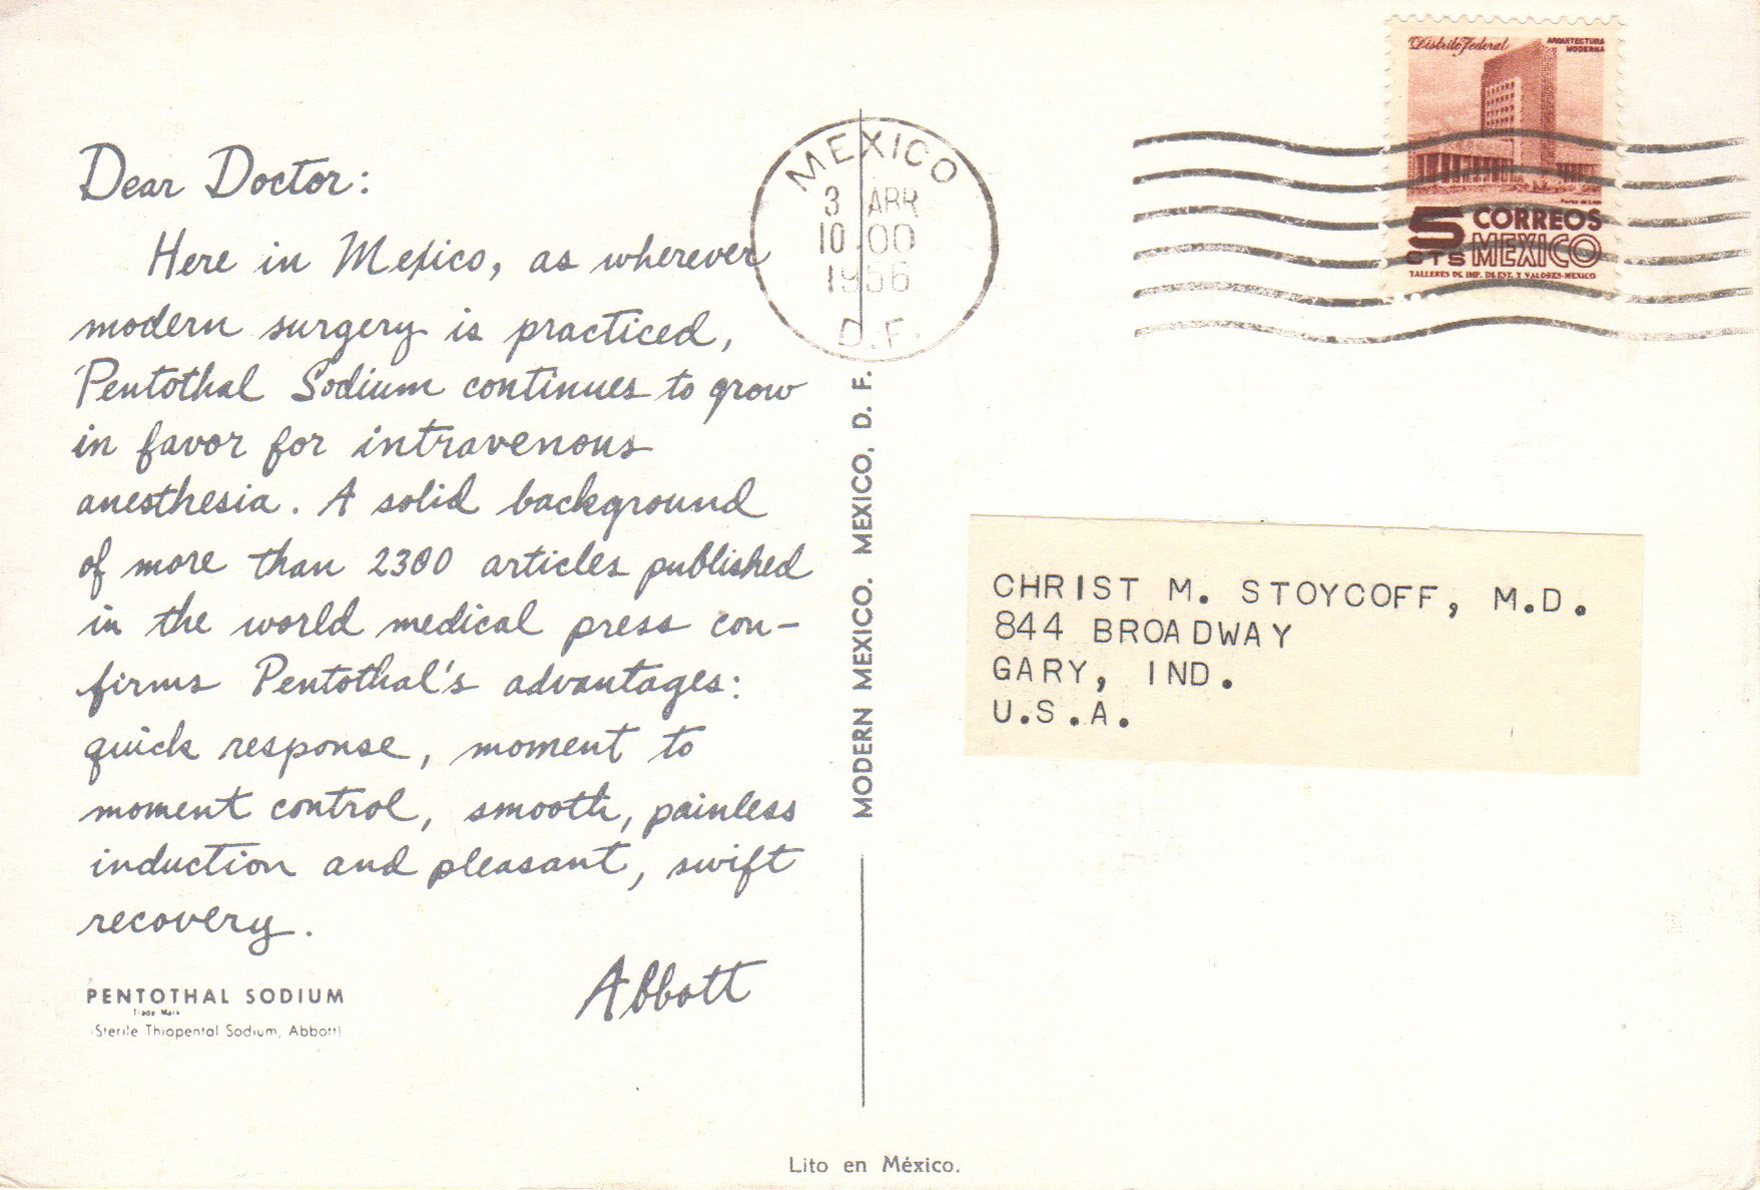 Dear Doctor:
Here in Mexico, as wherever
modern surgery is practiced,
Pentothal Sodium continues to grow
in favor for intravenous
anesthesia. A solid background
of more than 2300 articles published
in the world medical press con-
firms Pentothal's advantages:
quick response, moment to
moment control, smooth, painless
induction and pleasant, swift
recovery.
Abbott
PENTOTHAL SODIUM
Trade Mark
(Sterile Thiopental Sodium, Abbott)
MODERN MEXICO. MEXICO. MEXICO, D. F.
Lito en México.
MEXICO
3 ABR
10.00
1956
D.F.
Distrito Federal
ARQUITECTURA
MODERNA
5 CTS
CORREOS
MEXICO
TALLERES DE IMP. DE EST. Y VALORES-MEXICO
CHRIST M. STOYCOFF, M.D.
844 BROADWAY
GARY, IND.
U.S.A.